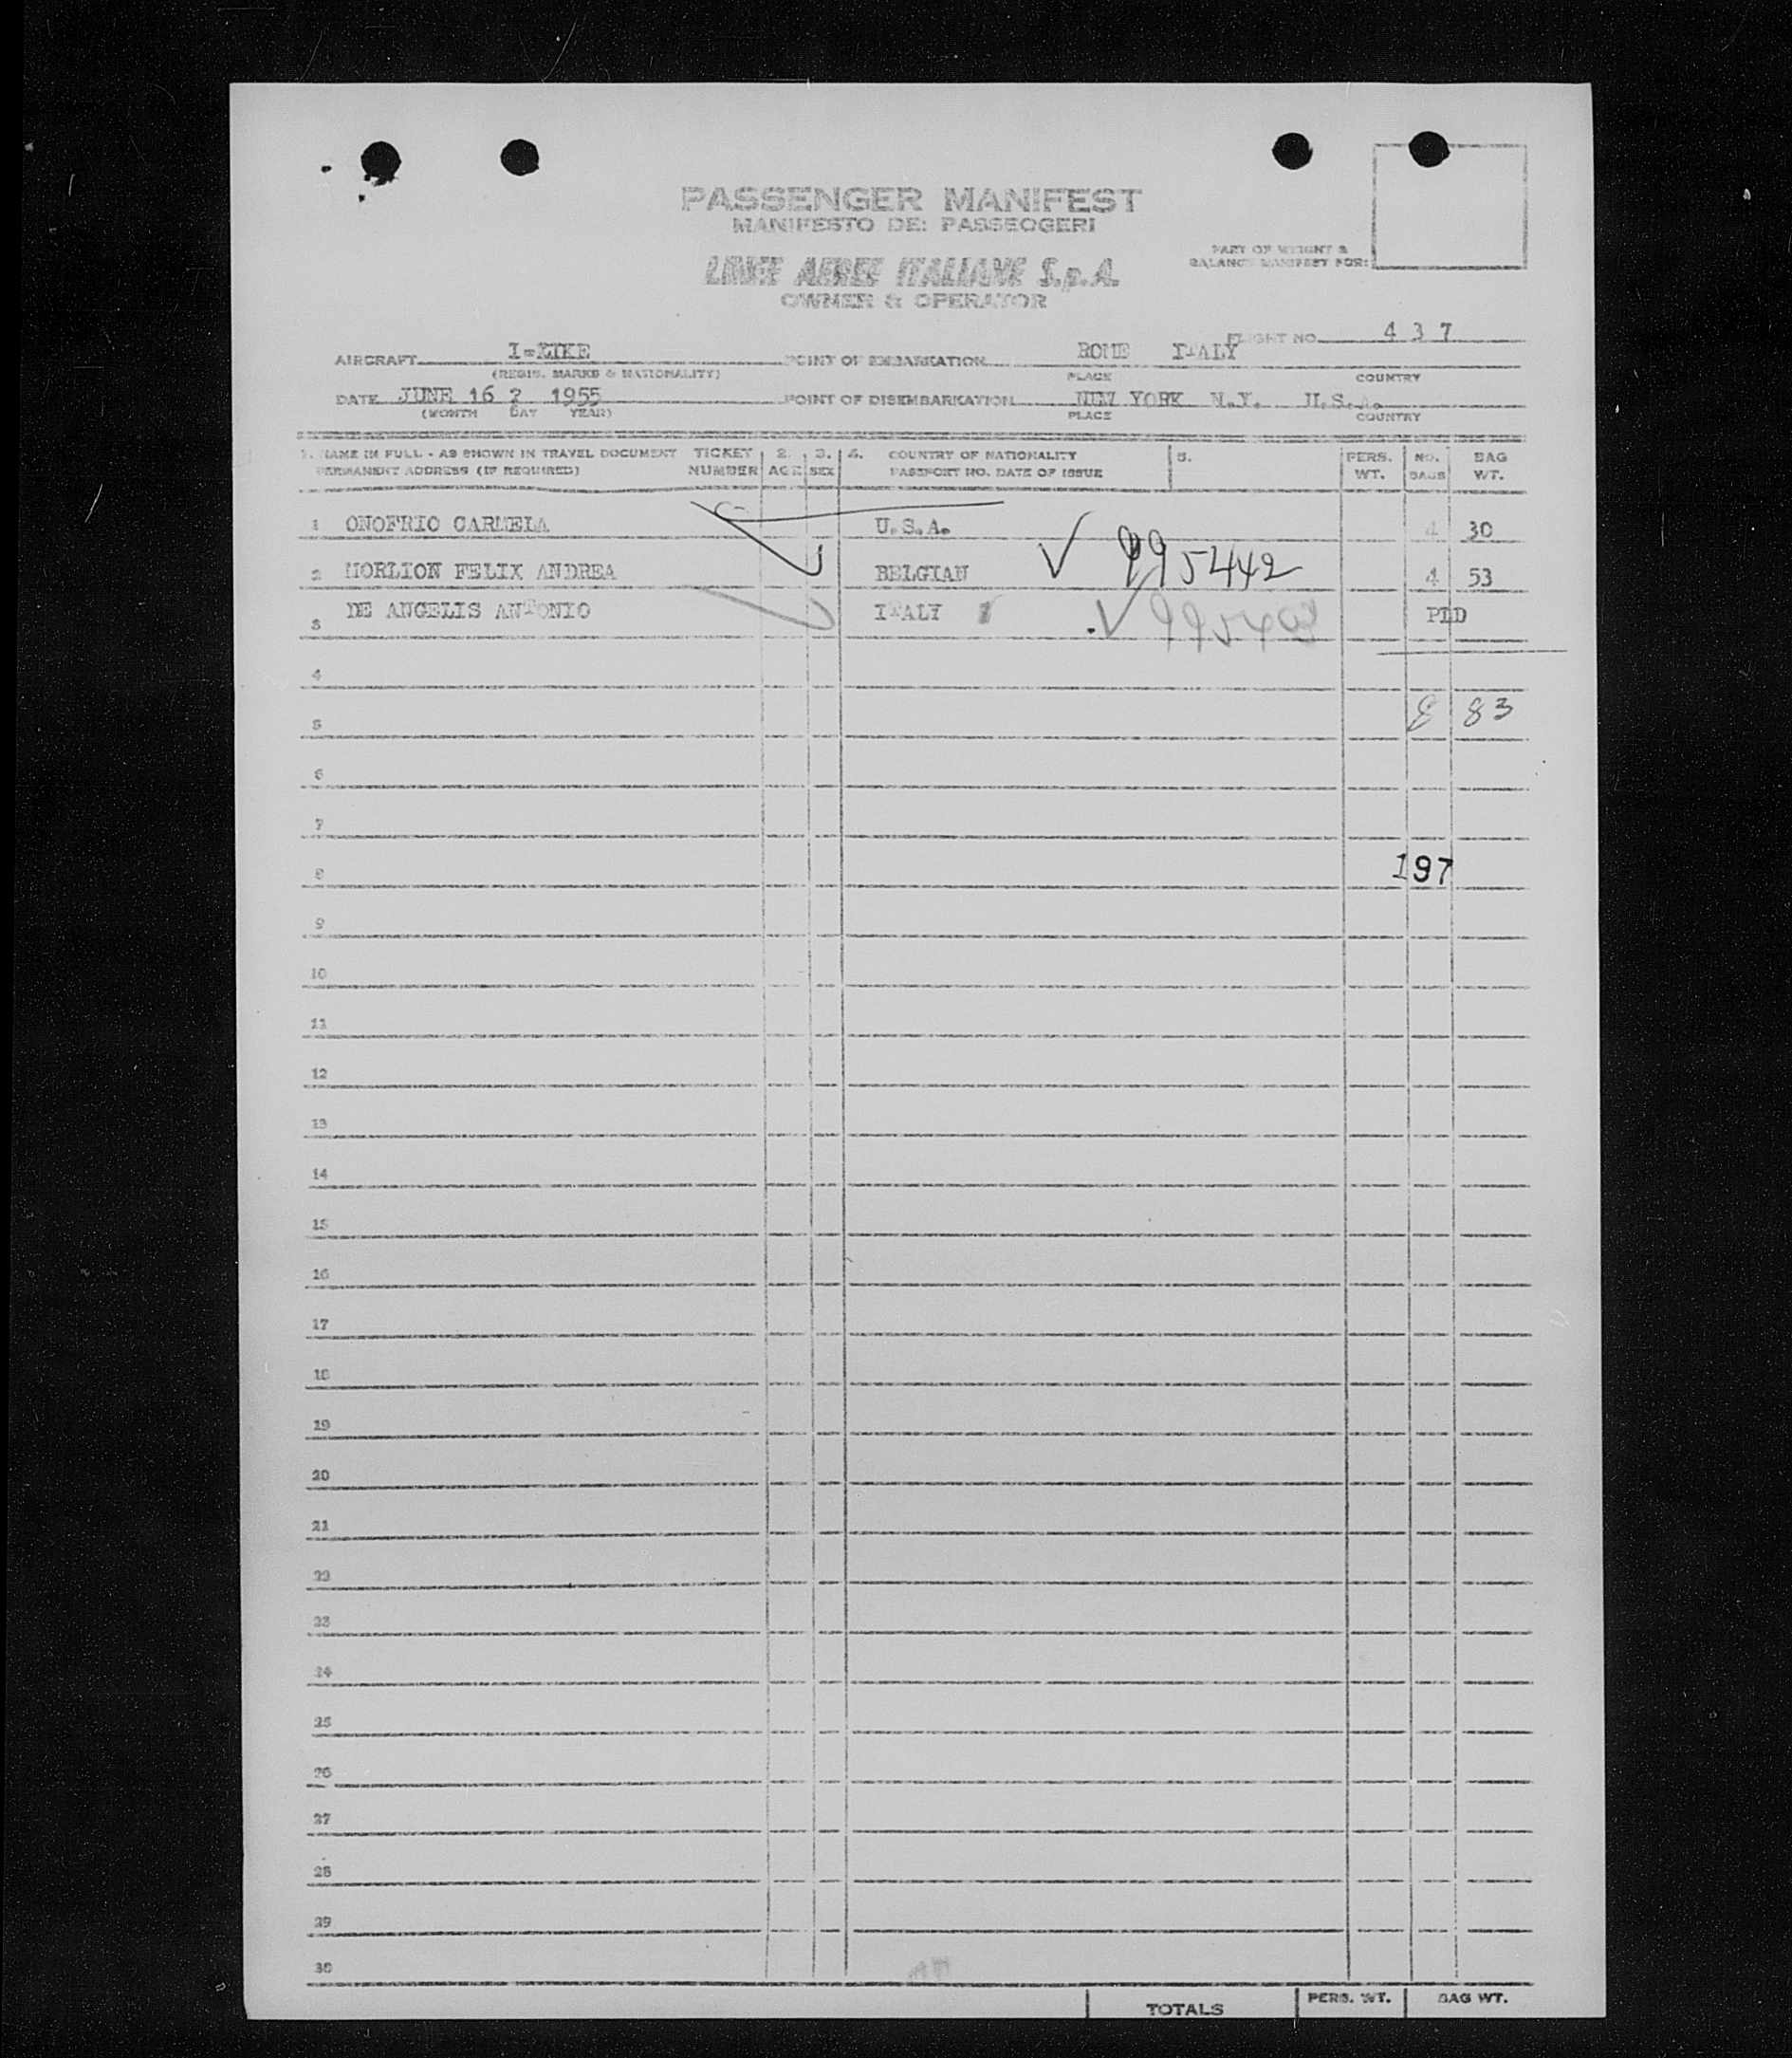 PASSENGER MANIFEST
MANIFESTO DEI PASSEGGERI
PART OF WEIGHT &
BALANCE MANIFEST FOR:
LINEE AEREE ITALIANE S.p.A.
OWNER & OPERATOR
FLIGHT NO. 4 3 7
AIRCRAFT I-LIKE POINT OF EMBARKATION ROME ITALY
(REGIS. MARKS & NATIONALITY) PLACE COUNTRY
DATE JUNE 16 ? 1955 POINT OF DISEMBARKATION NEW YORK N.Y. U.S.A.
(MONTH DAY YEAR) PLACE COUNTRY
1. NAME IN FULL - AS SHOWN IN TRAVEL DOCUMENT TICKET 2. 3. 4. COUNTRY OF NATIONALITY 5. PERS. NO. BAG
PERMANENT ADDRESS (IF REQUIRED) NUMBER AGE SEX PASSPORT NO. DATE OF ISSUE WT. BAGS WT.
1 ONOFRIO CARMELA U.S.A. 4 30
2 MORLION FELIX ANDREA BELGIAN ✓ 995442 4 53
3 DE ANGELIS ANTONIO ITALY ✓ PLD
4
5 8 83
6
7
8 197
9
10
11
12
13
14
15
16
17
18
19
20
21
22
23
24
25
26
27
28
29
30
TOTALS PERS. WT. BAG WT.